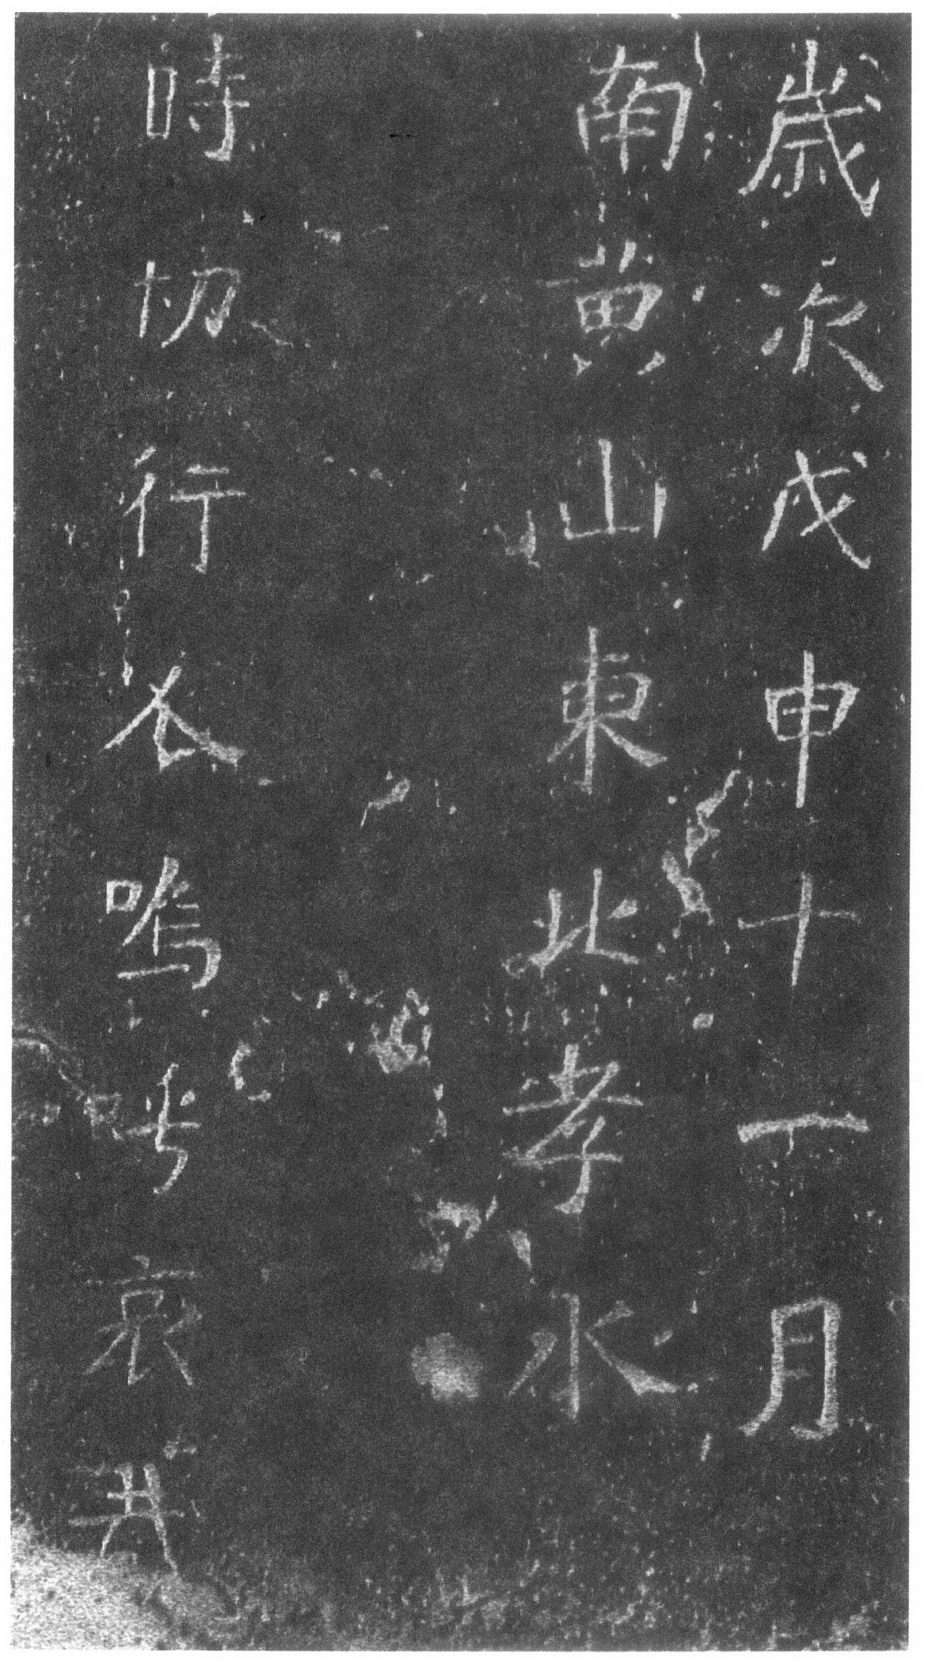 歲次戊申十一月
南黄山東北孝水
時切行公嗚乎哀